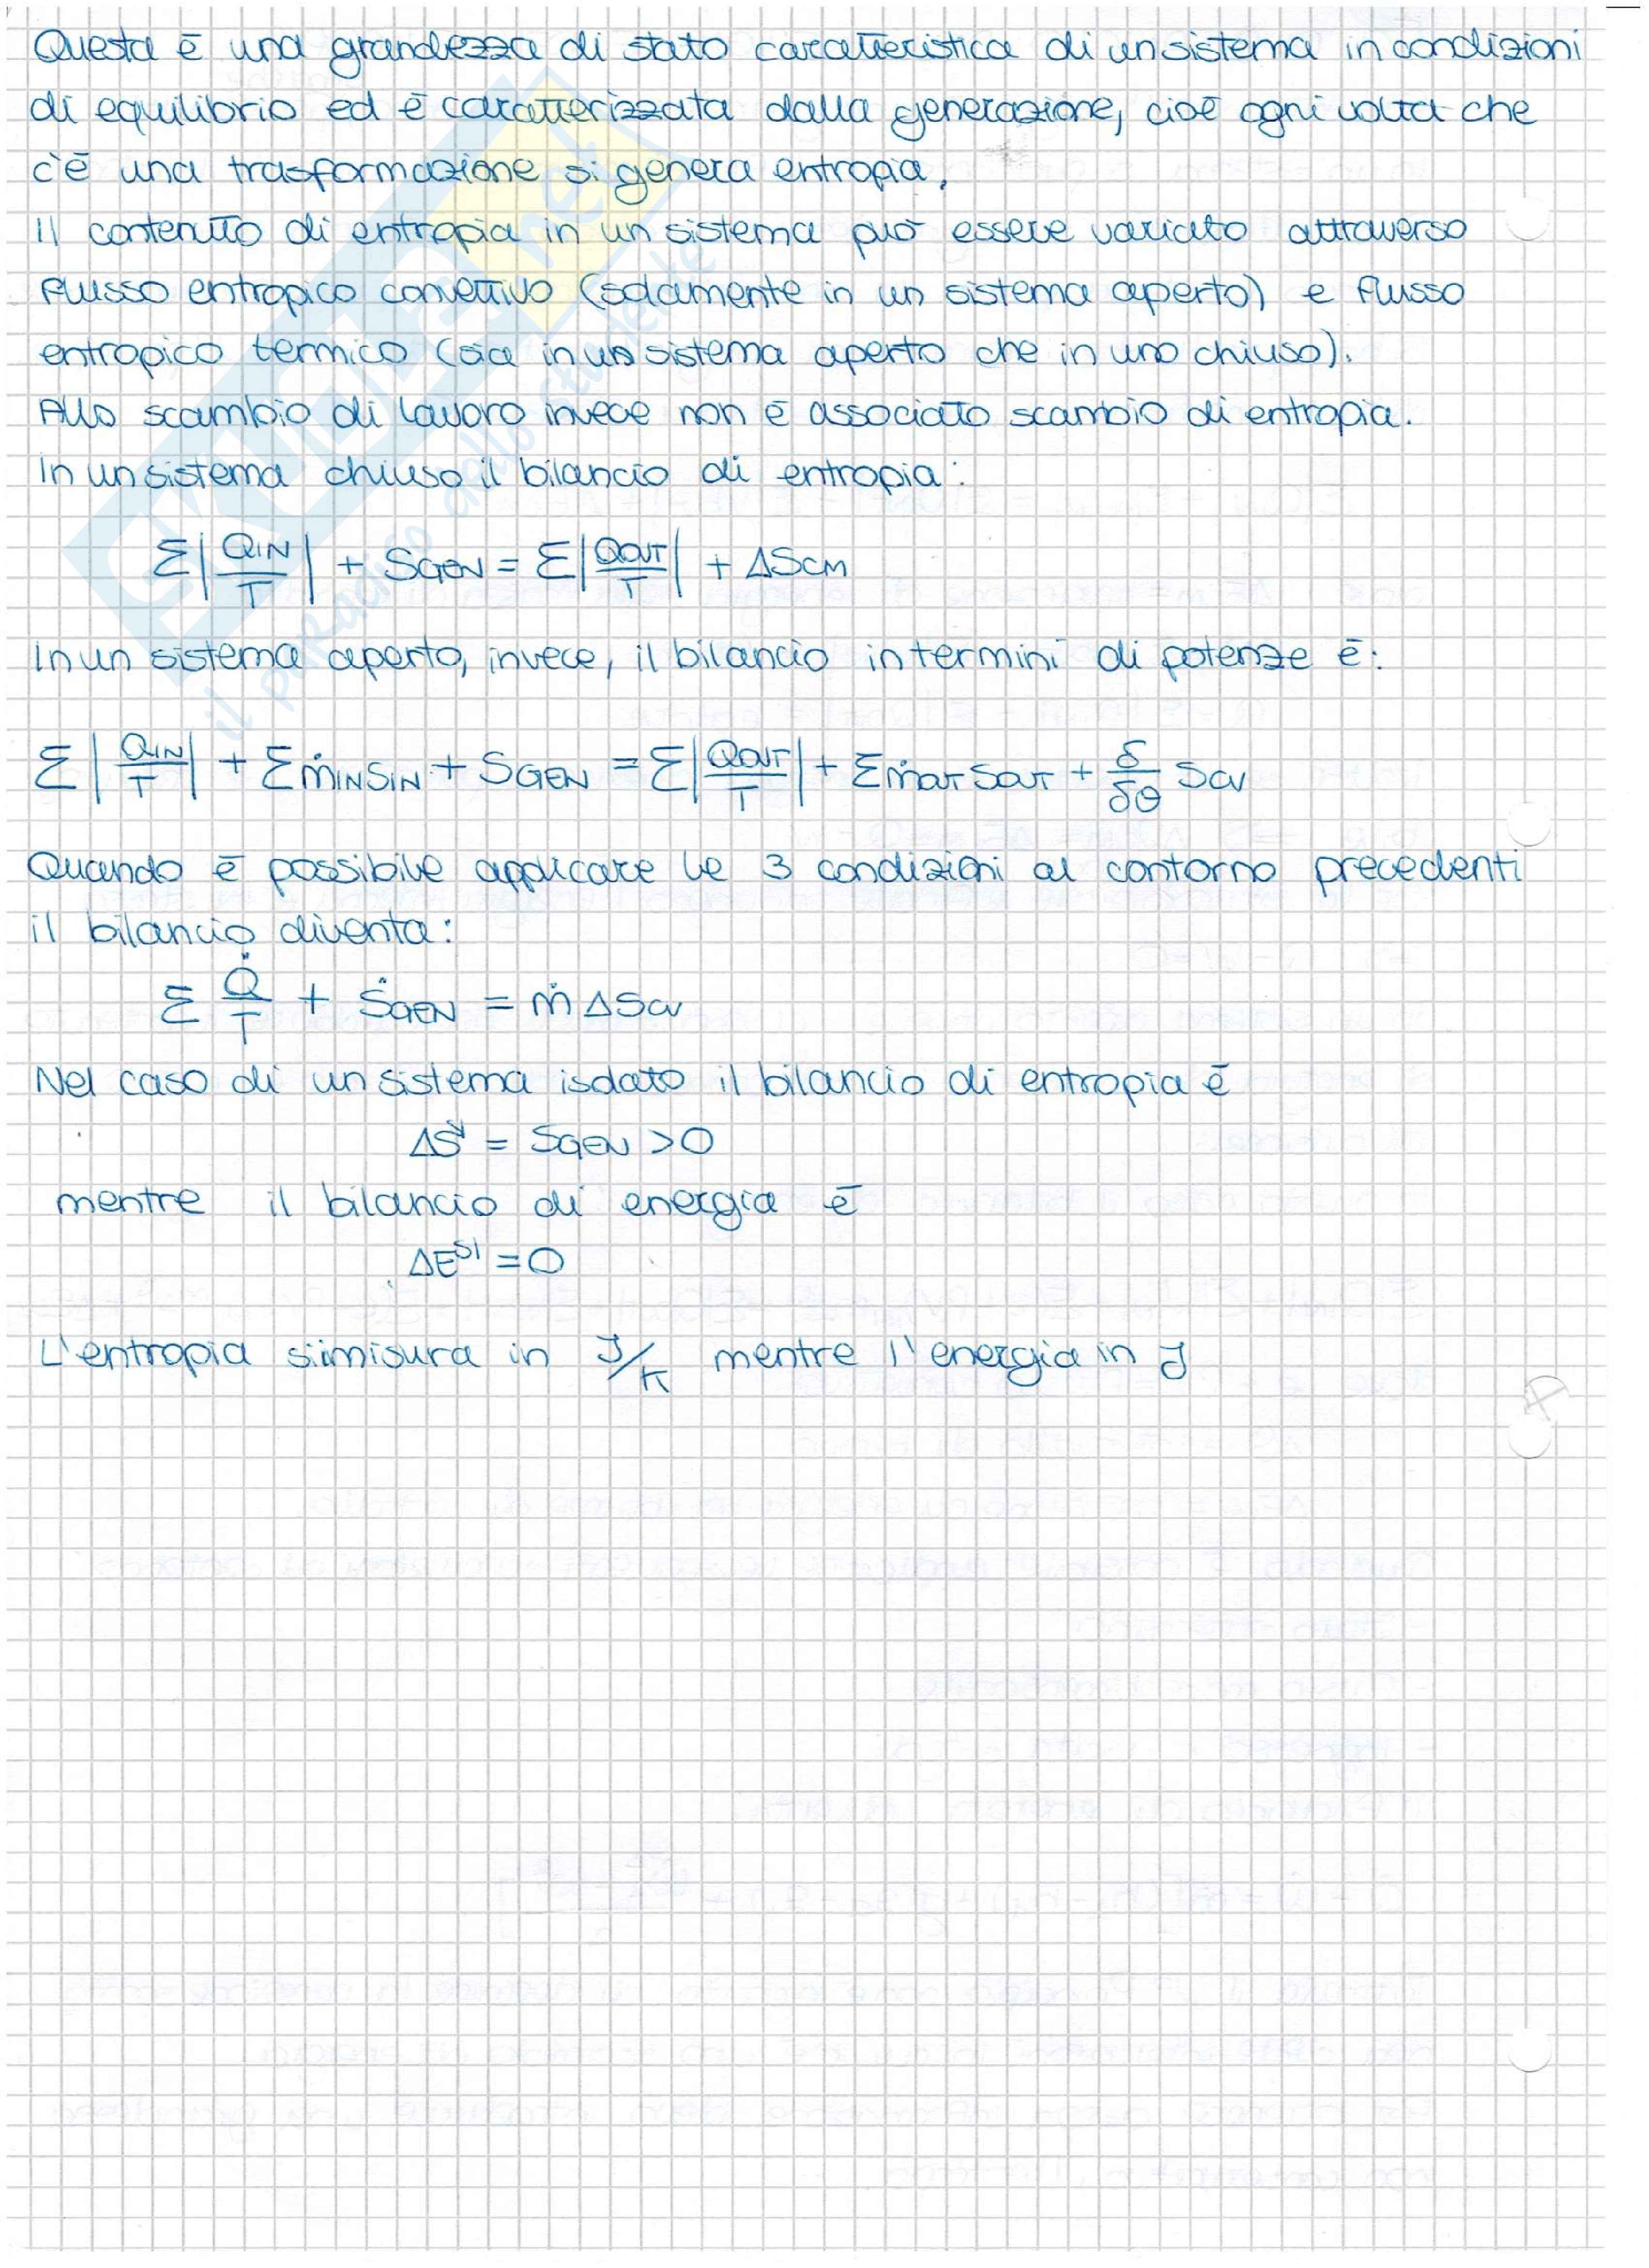 Questa è una grandezza di stato caratteristica di un sistema in condizioni
di equilibrio ed è caratterizzata dalla generazione, cioè ogni volta che
c'è una trasformazione si genera entropia.
Il contenuto di entropia in un sistema può essere variato attraverso
flusso entropico convettivo (solamente in un sistema aperto) e flusso
entropico termico (sia in un sistema aperto che in uno chiuso).
Allo scambio di lavoro invece non è associato scambio di entropia.
In un sistema chiuso il bilancio di entropia:
Σ|QIN/T| + SGEN = Σ|QOUT/T| + ΔSCM
In un sistema aperto, invece, il bilancio in termini di potenze è:
Σ|QIN/T| + ΣṁINSIN + SGEN = Σ|QOUT/T| + ΣṁOUTSOUT + δ/δθ SCV
Quando è possibile applicare le 3 condizioni al contorno precedenti
il bilancio diventa:
Σ Q̇/T + ṠGEN = ṁΔSCV
Nel caso di un sistema isolato il bilancio di entropia è
ΔS = SGEN >0
mentre il bilancio di energia è
ΔE^SI = 0
L'entropia si misura in J/K mentre l'energia in J
SKUOLA.net
il paradiso dello studente